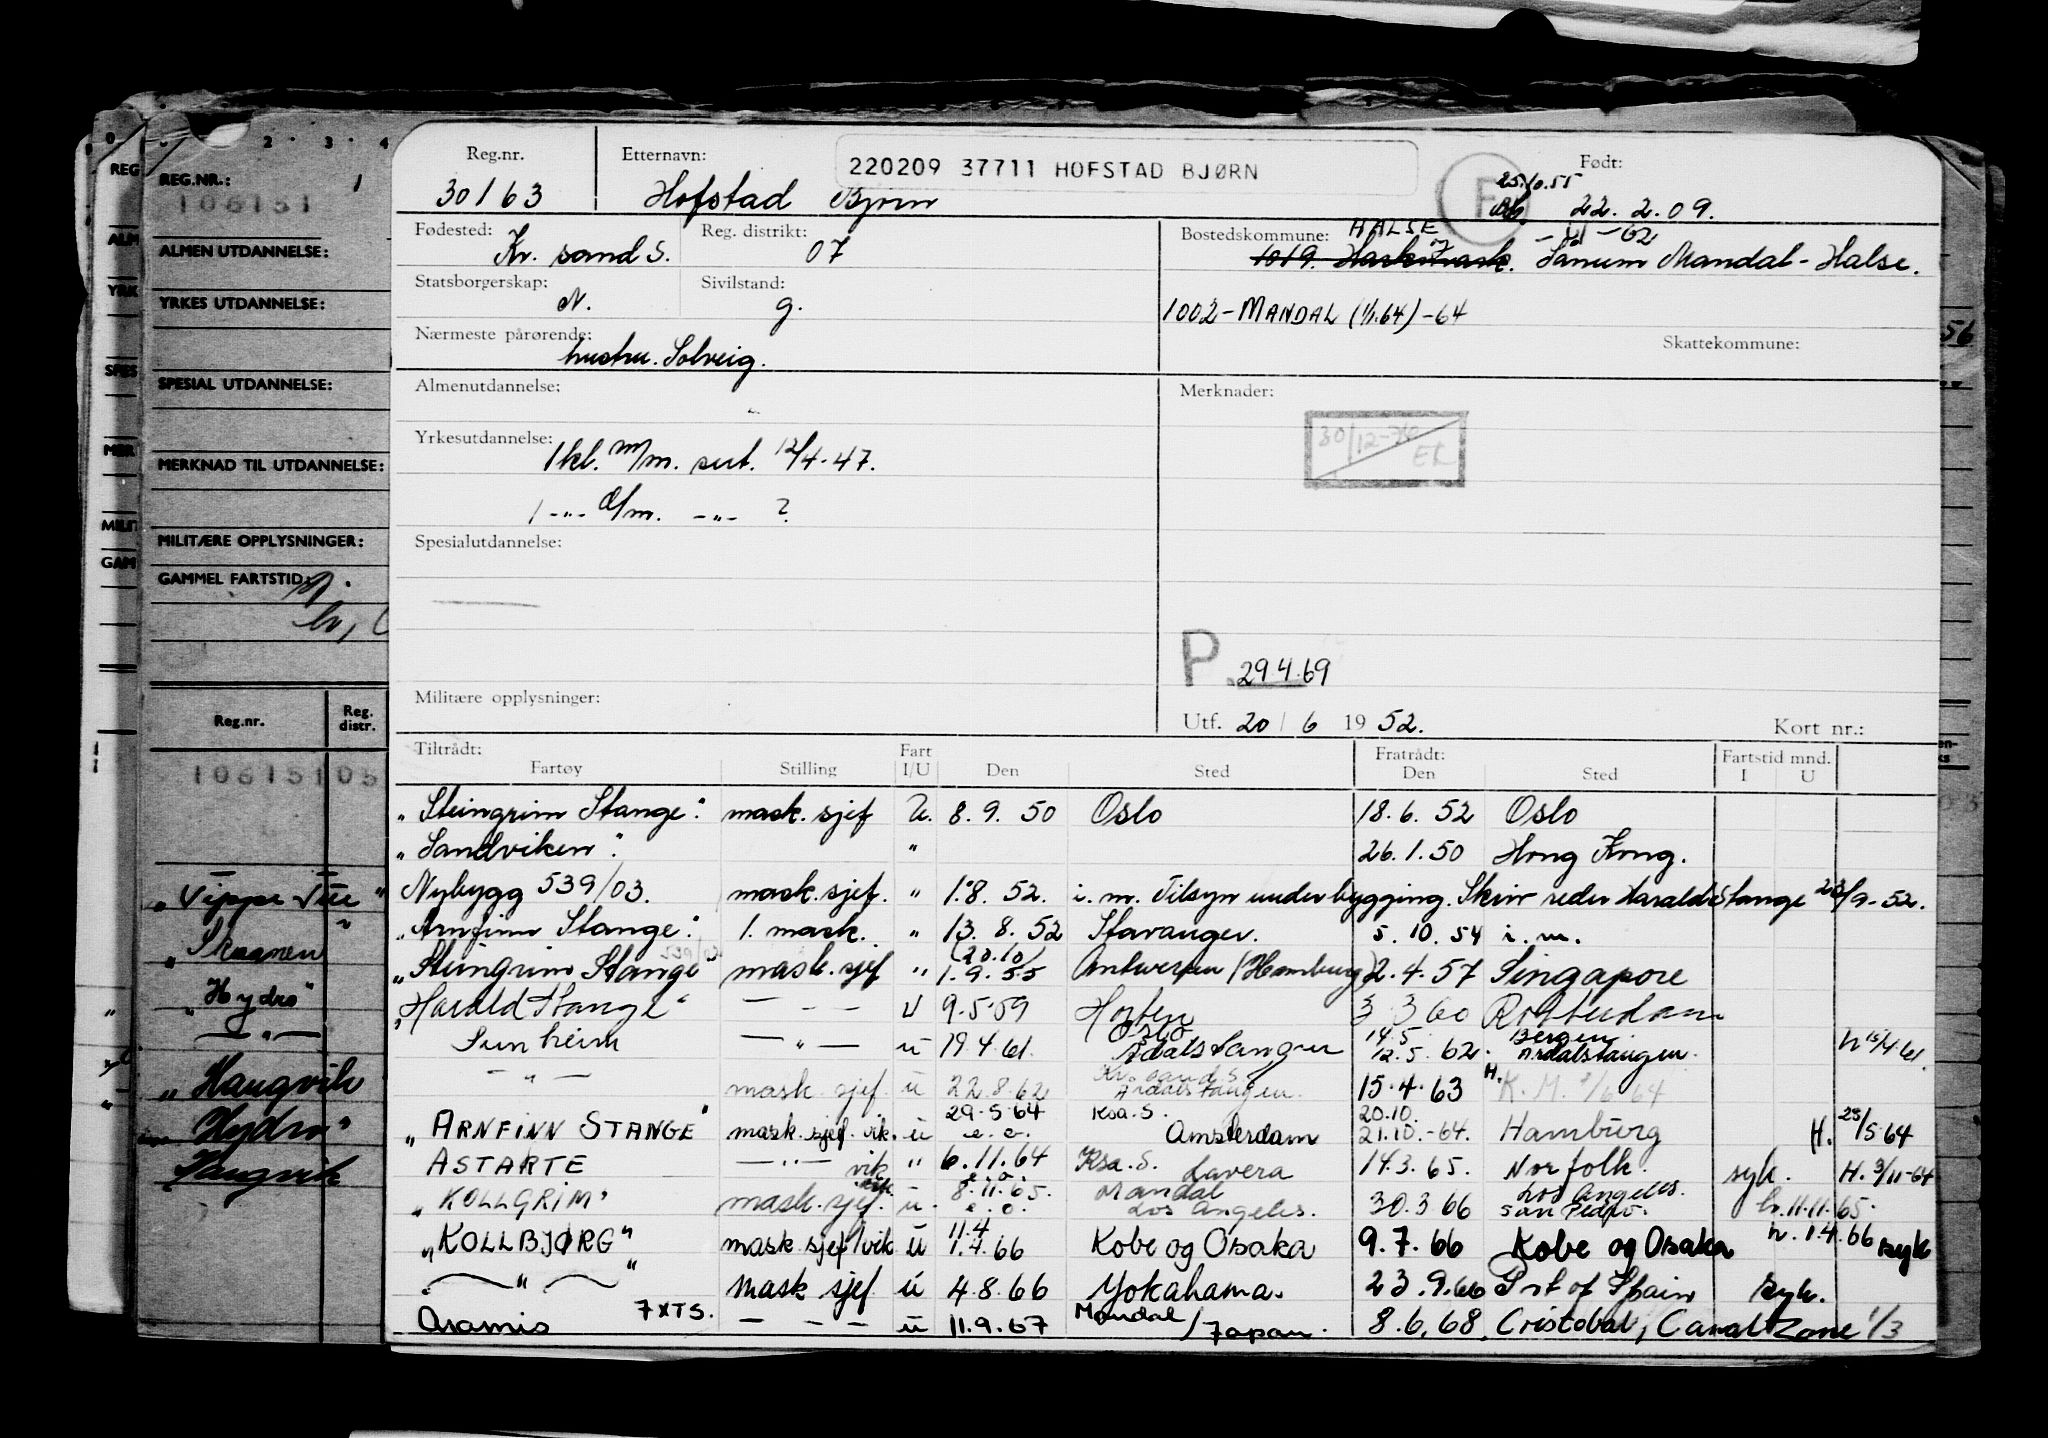 REG.NR.: 1
106151
ALMEN UTDANNELSE:
YRKES UTDANNELSE:
SPESIAL UTDANNELSE:
MERKNAD TIL UTDANNELSE:
MILITÆRE OPPLYSNINGER:
GAMMEL FARTSTID:
Reg.nr. Reg. distr.
10615105
"Hydro"
"Haugvik
Hydro"
Haugvik
Reg.nr.
30163
Etternavn:
220209 37711 HOFSTAD BJØRN
Hofstad Bjørn
Født:
25.10.55
22.2.09.
F
Fødested:
Kr. sand S.
Reg. distrikt:
07
Bostedskommune: HALSE
1019. Harkmark. Sånum Mandal - Halse.
Statsborgerskap:
N.
Sivilstand:
g.
1002 - MANDAL (1/1.64) - 64
Nærmeste pårørende:
hustru. Solveig.
Skattekommune:
Almenutdannelse:
Merknader:
30/12-70
EL
Yrkesutdannelse:
1 kl. m/m. sert. 12/4-47.
1 -"- d/m. -"- ?
Spesialutdannelse:
P 29.4.69
Militære opplysninger:
Utf. 20/6 1952.
Kort nr.:
Tiltrådt: Fartøy Stilling Fart I/U Den Sted Fratrådt: Den Sted Fartstid mnd. I U
"Steingrim Stange". mask. sjef U. 8.9.50 Oslo 18.6.52 Oslo
"Sandviken". " 26.1.50 Hong Kong.
Nybygg 539/03. mask. sjef. " 1.8.52. i.m. Tilsyn under bygging. Skriv reder Harald Stange 23/9-52.
"Arnfinn Stange". 1. mask. " 13.8.52 Stavanger. 5.10.54 i.m.
"Steingrim Stange" mask. sjef " (20.10) 1.9.55 Antwerpen (Hamburg) 2.4.57 Singapore
"Harald Stange" - - - U 9.5.59 Horten 3 3 60 Rotterdam
Sunheim - " - u 19.4.61. Oslo Årdalstangen 14.5 12.5.62. Bergen Årdalstangen. h 15/4 61
- " - mask. sjef. u 22.8.62 Kr. sand S. Årdalstangen. 15.4.63 H. K.M. 64
"ARNFINN STANGE" mask. sjef. vik. u 29.5.64 e.o. Ksa. S. Amsterdam 20.10. 21.10.-64. Hamburg H. 25/5 64
ASTARTE - " - vik " 6.11.64 e.o. Ksa. S. Lavera 14.3.65. Norfolk. syk. H. 3/11-64
"KOLLGRIM" mask. sjef. vik u. 8.11.65. e.o. Mandal Los Angeles. 30.3 66 Los Angeles. San Pedro. h. 11.11.65.
"KOLLBJØRG" mask sjef/vik u 11.4 1.4.66 Kobe og Osaka 9.7.66 Kobe og Osaka h. 1.4.66 syk
- " - mask sjef u 4.8.66 Yokahama. 23.9.66 Port of Spain syk.
Aramis 7XTS. - - - u 11.9.67 Mandal / Japan. 8.6.68. Cristobal, Canal Zone 1/3